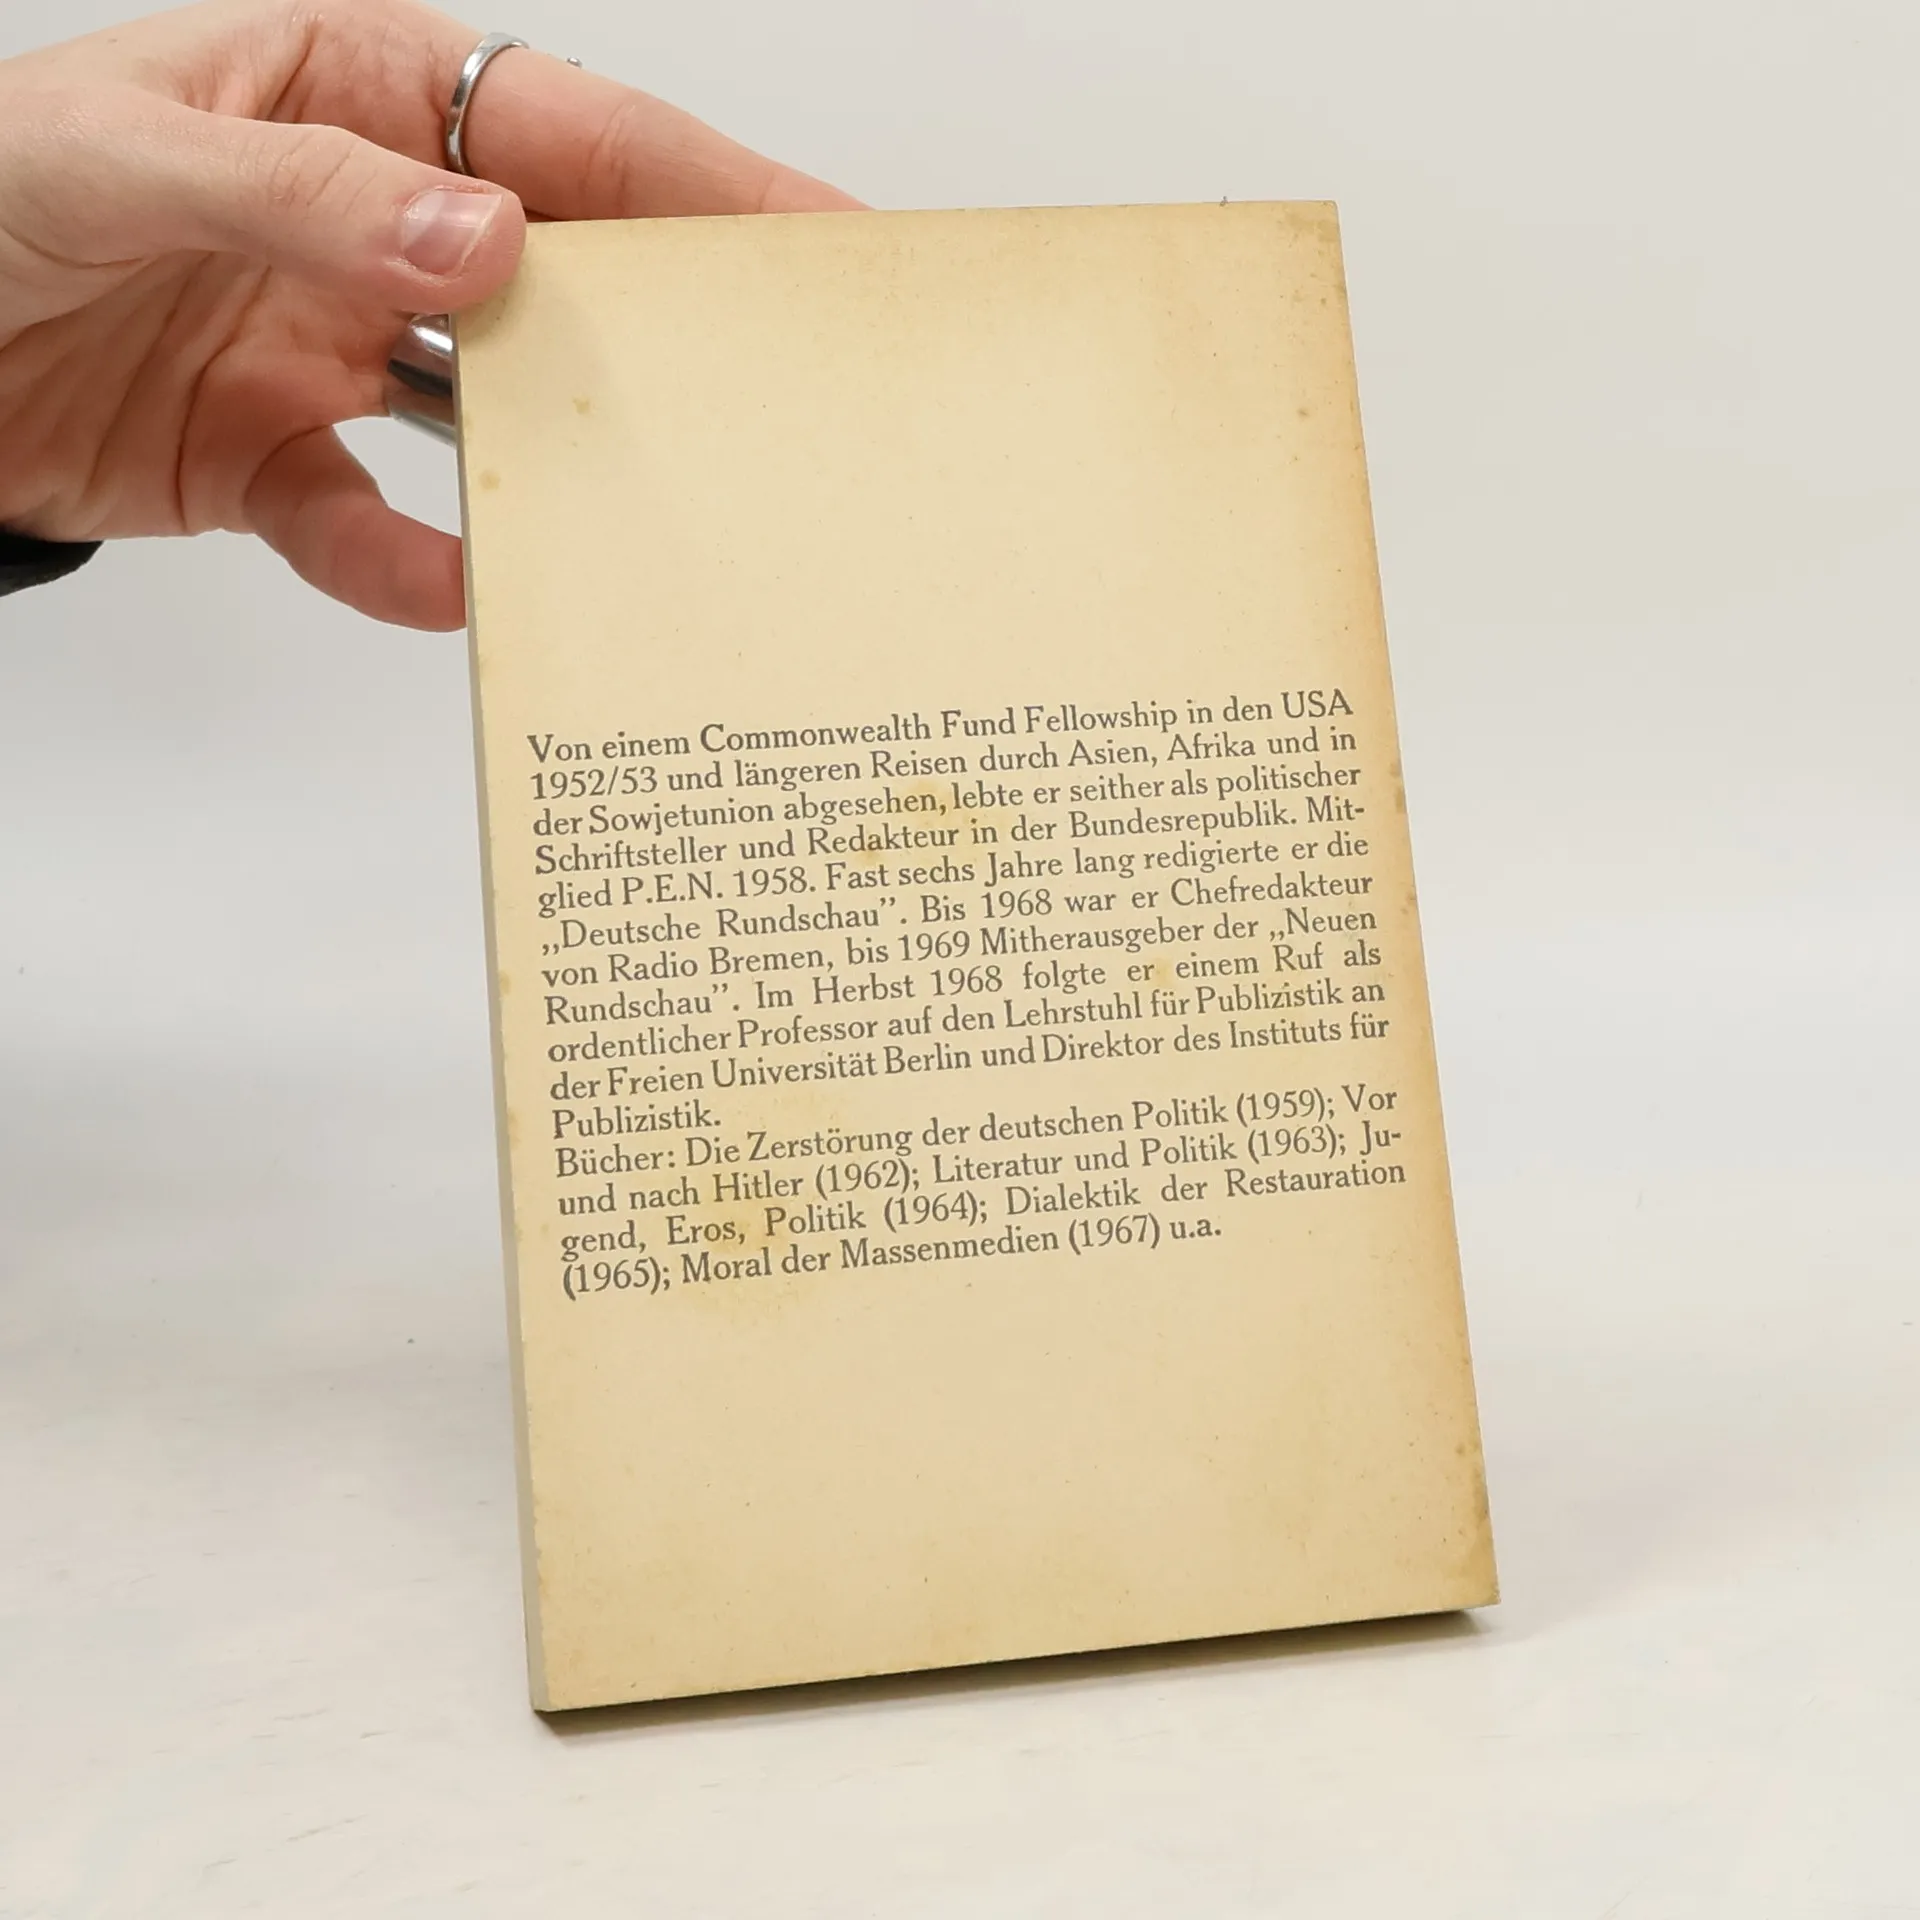 Von einem Commonwealth Fund Fellowship in den USA
1952/53 und längeren Reisen durch Asien, Afrika und in
der Sowjetunion abgesehen, lebte er seither als politischer
Schriftsteller und Redakteur in der Bundesrepublik. Mit-
glied P.E.N. 1958. Fast sechs Jahre lang redigierte er die
„Deutsche Rundschau”. Bis 1968 war er Chefredakteur
von Radio Bremen, bis 1969 Mitherausgeber der „Neuen
Rundschau”. Im Herbst 1968 folgte er einem Ruf als
ordentlicher Professor auf den Lehrstuhl für Publizistik an
der Freien Universität Berlin und Direktor des Instituts für
Publizistik.
Bücher: Die Zerstörung der deutschen Politik (1959); Vor
und nach Hitler (1962); Literatur und Politik (1963); Ju-
gend, Eros, Politik (1964); Dialektik der Restauration
(1965); Moral der Massenmedien (1967) u.a.